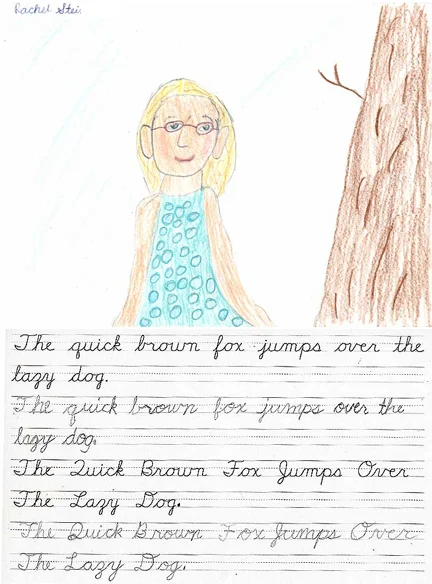 Rachel
The quick brown fox jumps over the
lazy dog.
The quick brown fox jumps over the
lazy dog.
The Quick Brown Fox Jumps Over
The Lazy Dog.
The Quick Brown Fox Jumps Over
The Lazy Dog.